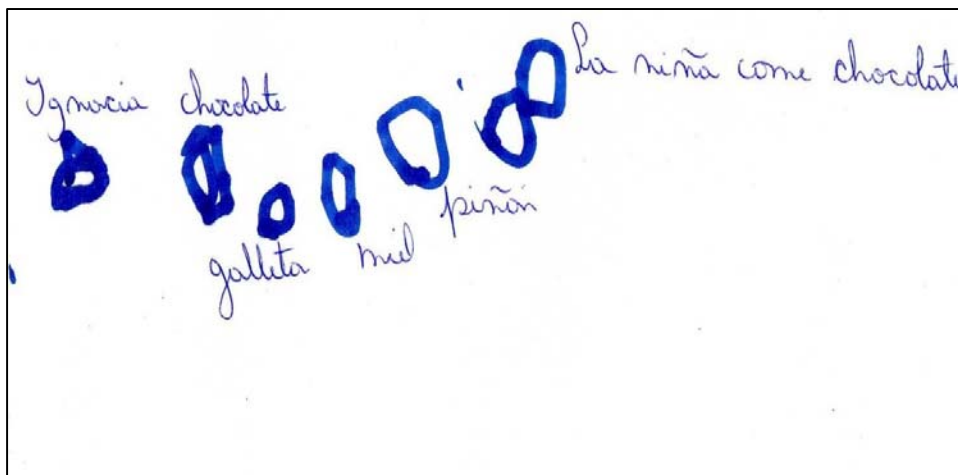 Ignacia chocolate
La niña come chocolate
galleta miel piñón